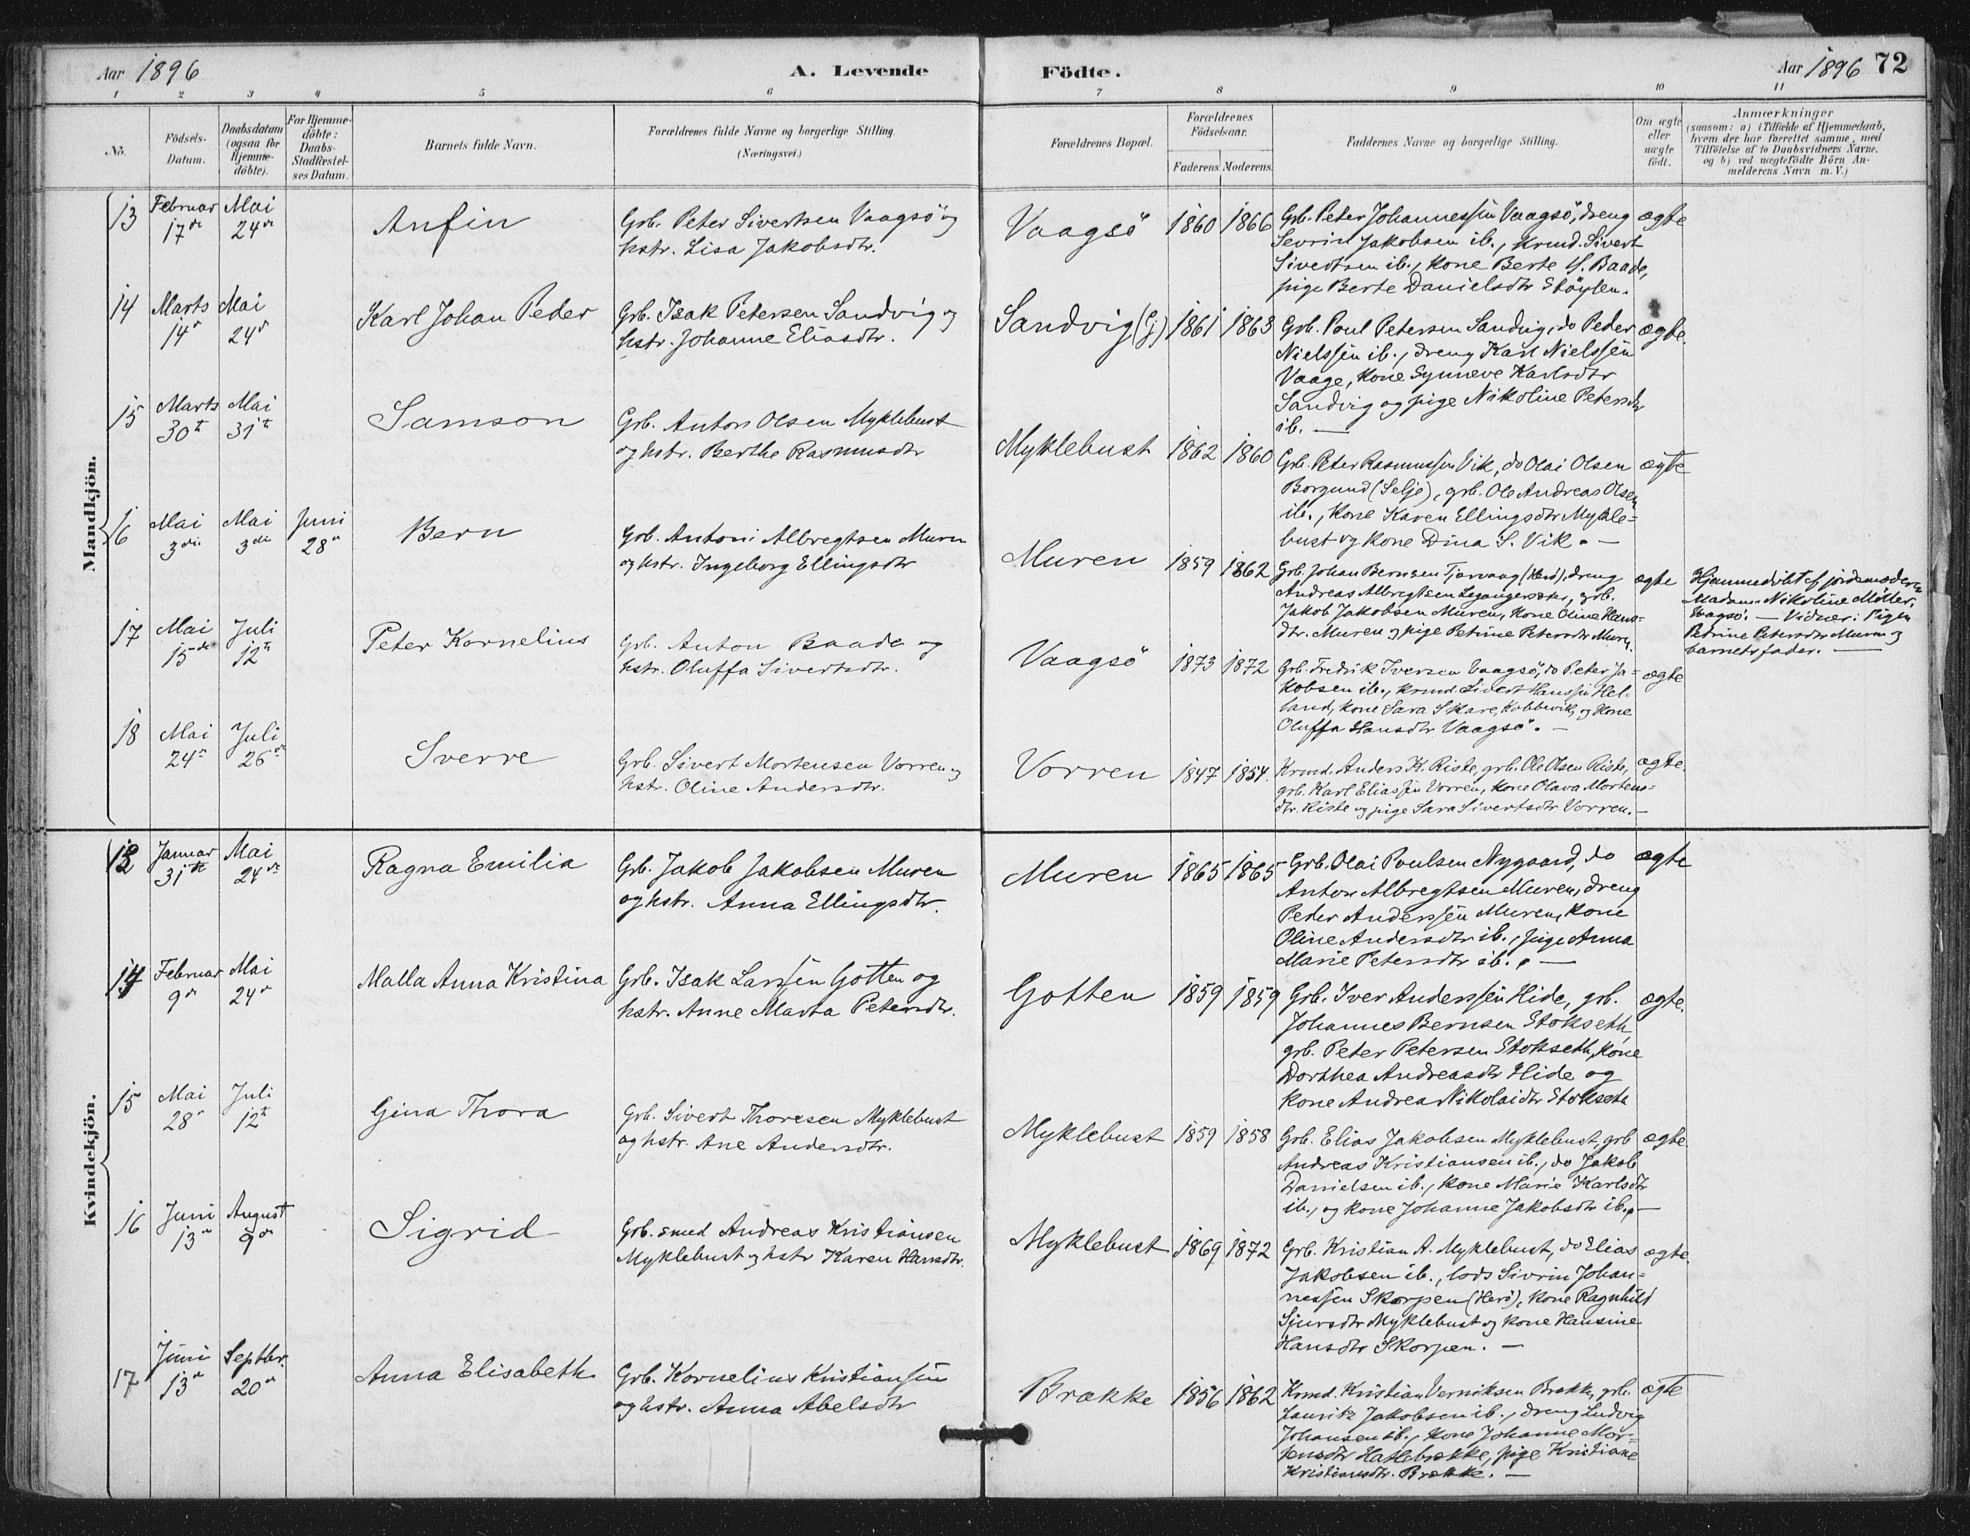 Aar 1896
A. Levende
Födte.
Aar 1896 72
1 2 3 4 5 6 7 8 9 10 11
No.
Födsels-
Datum.
Daabsdatum
(ogsaa for
Hjemme-
döbte).
For Hjemme-
döbte:
Daabs-
Stadfæstel-
ses Datum.
Barnets fulde Navn.
Forældrenes fulde Navne og borgerlige Stilling.
(Næringsvei.)
Forældrenes Bopæl.
Forældrenes
Födselsaar.
Faderens. Moderens.
Faddernes Navne og borgerlige Stilling.
Om ægte
eller
uægte
födt.
Anmærkninger
(saasom: a) i Tilfælde af Hjemmedaab,
hvem der har forrettet samme, med
Tilföielse af to Daabsvidners Navne,
og b) ved uægtefödte Börn An-
melderens Navn m. V.)
Mandkjön.
13
Februar
17de
Mai
24de
Anfin
Grb. Peter Sivertsen Vaagsö og
hstr. Lisa Jakobsdtr.
Vaagsö
1860 1866
Grb. Peter Johannessen Vaagsö, dreng
Sevrin Jakobsen ib., krmd. Sivert
Sivertsen ib., kone Berte S. Baade,
pige Berte Danielsdtr Stöylen.
ægte
14
Marts
14de
Mai
24de
Karl Johan Peder
Grb. Isak Petersen Sandvig og
hstr. Johanne Eliasdtr.
Sandvig (G)
1861 1863
Grb. Poul Petersen Sandvig, do Peder
Nielssen ib., dreng Karl Nielssen
Vaage, kone Synneve Karlsdtr
Sandvig og pige Nikoline Petersdtr
ib. —
ægte.
15
Marts
30te
Mai
31te
Samson
Grb. Anton Olsen Myklebust
og hstr. Berthe Rasmusdtr
Myklebust
1862 1860
Grb. Peter Rasmussen Vik, do Olai Olsen
Borgund (Selje), grb. Ole Andreas Olsen
ib., kone Karen Ellingsdtr Mykle-
bust og kone Dina S. Vik. —
ægte
16
Mai
3die
Mai
3die
Juni
28de
Bern
Grb. Antoni Albregtsen Muren
og hstr. Ingeborg Ellingsdtr
Muren
1859 1862
Grb. Johan Bernsen Tjörvaag (Herö), dreng
Andreas Albregtsen Legangersæter, grb.
Jakob Jakobsen Muren, kone Oline Hans-
dtr. Muren og pige Petrine Petersdtr Muren.
ægte
Hjemmedöbt af jordemoderen
Madam Nikoline Möller,
Vaagsö. — Vidner: Pigen
Petrine Petersdtr Muren og
barnets fader. —
17
Mai
15de
Juli
12te
Peter Kornelius
Grb. Anton Baade og
hstr. Oluffa Sivertsdtr.
Vaagsö
1873 1872
Grb. Fredrik Iversen Vaagsö, do Peter Ja-
kobsen ib., krmd Sivert Hanssen Hel-
land, kone Sara Skare, Kobbevik, og kone
Oluffa Hansdtr Vaagsö. —
ægte
18
Mai
24de
Juli
26de
Sverre
Grb. Sivert Mortensen Vorren og
hstr. Oline Andersdtr.
Vorren
1847 1854.
Krmd. Anders K. Riste, grb. Ole Olsen Riste,
grb. Karl Eliassen Vorren, kone Olava Mortens-
dtr. Riste og pige Sara Sivertsdtr Vorren. —
ægte.
Kvindekjön.
13
Januar
31te
Mai
24de
Ragna Emilia
Grb. Jakob Jakobsen Muren
og hstr. Anna Ellingsdtr.
Muren
1865 1865
Grb. Olai Poulsen Nygaard, do
Anton Albregtsen Muren, dreng
Peder Anderssen Muren, kone
Oline Andersdtr ib., pige Anna
Marie Petersdtr ib. —
ægte
14
Februar
9de
Mai
24de
Malla Anna Kristina
Grb. Isak Larssen Gotten og
hstr. Anne Marta Petersdtr.
Gotten
1859 1859
Grb. Iver Anderssen Hide, grb.
Johannes Bernsen Stokseth
grb. Peter Petersen Stokseth, kone
Dorthea Andreasdtr Hide og
kone Andrea Nikolaidtr Stokseth
ægte.
15
Mai
28de
Juli
12te
Gina Thora
Grb. Sivert Thoresen Myklebust
og hstr. Ane Andersdtr.
Myklebust
1859 1858
Grb. Elias Jakobsen Myklebust, grb
Andreas Kristiansen ib., do Jakob
Danielsen ib., kone Marie Karlsdtr
ib., og kone Johanne Jakobsdtr ib. —
ægte
16
Juni
13de
August
9de
Sigrid
Grb. smed Andreas Kristiansen
Myklebust og hstr Karen Hansdtr.
Myklebust
1869 1872
Grb. Kristian A. Myklebust, do Elias
Jakobsen ib., lods Sivrin Johan-
nessen Skorpen (Herö), kone Ragnhild
Sjursdtr Myklebust og kone Hansine
Hansdtr Skorpen. —
ægte.
17
Juni
13de
Septbr.
20de
Anna Elisabeth
Grb. Kornelius Kristiansen
og hstr. Anna Abelsdtr
Brække
1856 1862
Krmd. Kristian Bernsen Brække, grb.
Lauritz Jakobsen ib., dreng Ludvig
Johansen ib., kone Johanne Mor-
tensdtr Hatlebrække, pige Kristiane
Kristiansdtr. Brække. —
ægte